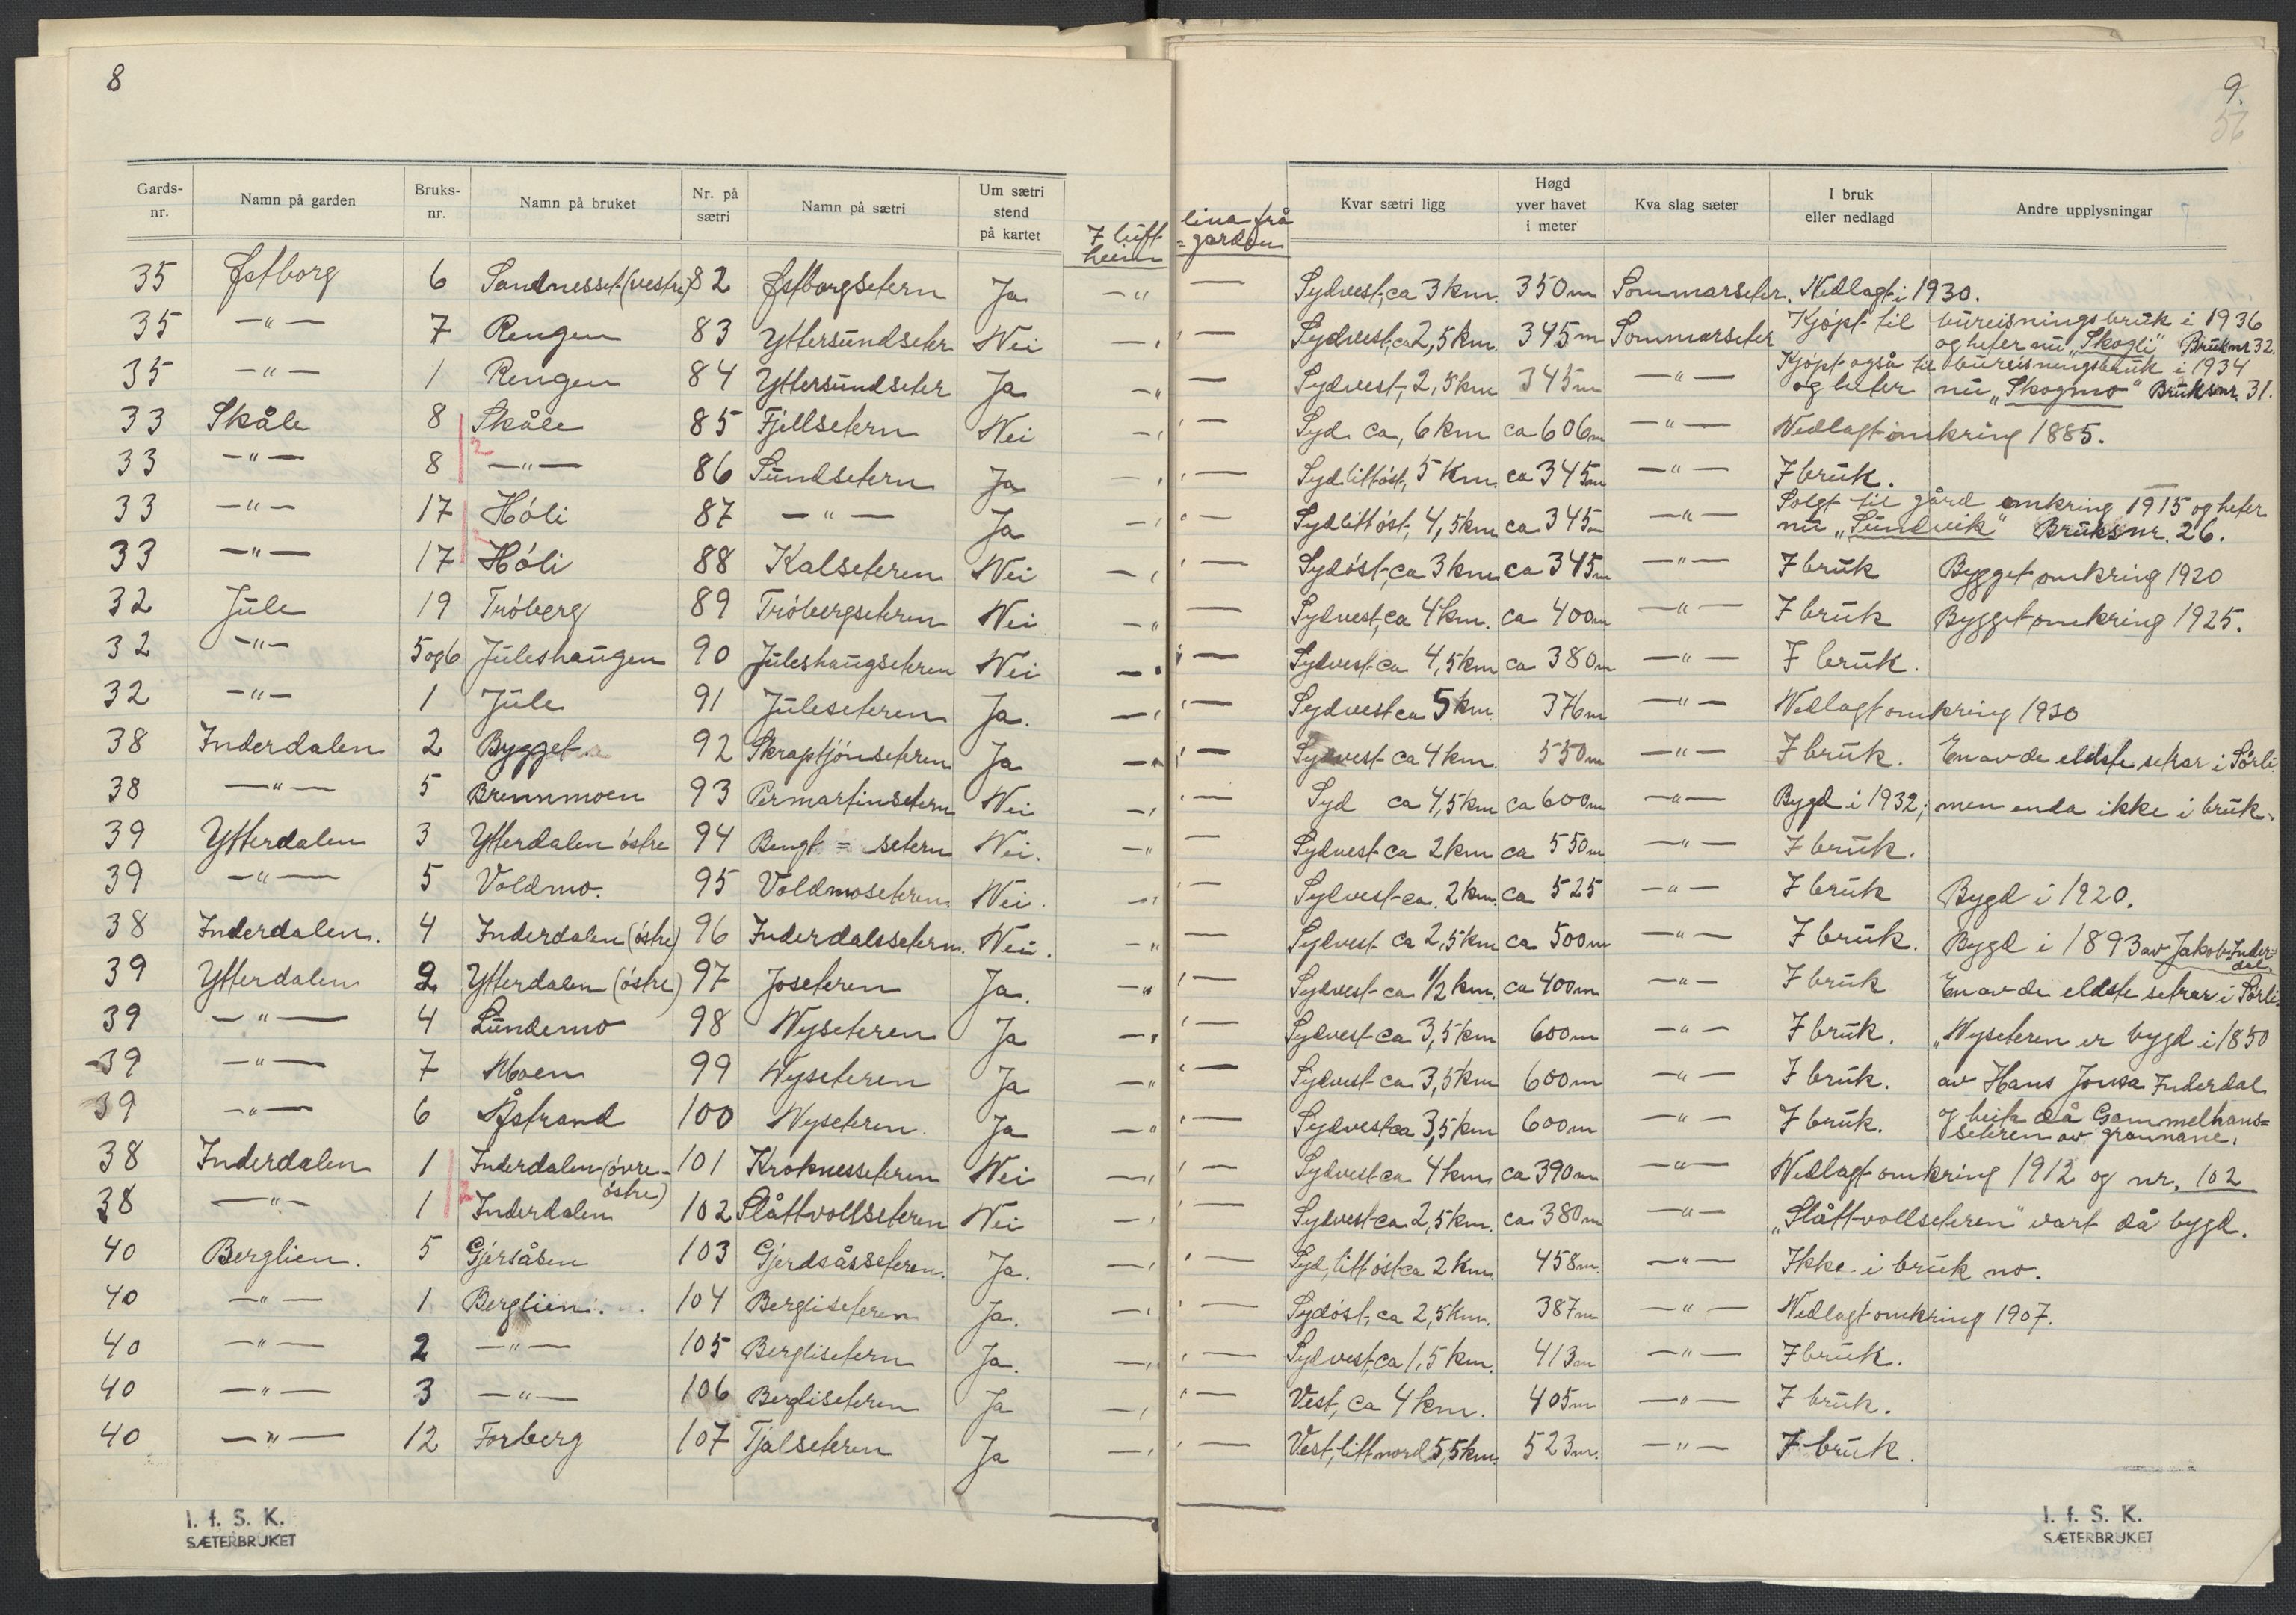 8
9.
56
Gards-nr. Namn på garden Bruks-nr. Namn på bruket Nr. på sætri Namn på sætri Um sætri stend på kartet I luftlina frå heimgarden Kvar sætri ligg Høgd yver havet i meter Kva slag sæter I bruk eller nedlagd Andre upplysningar
35 Østborg 6 Sandnesset (vestre) 82 Østborgsetern Ja —"— Sydvest, ca 3 km. 350 m Sommarseter. Nedlagt i 1930.
35 —"— 7 Rengen 83 Yttersundseter Nei —"— Sydvest, ca 2,5 km. 345 m Sommarseter Kjøpt til bureisningsbruk i 1936
og heter nu „Skogli" Bruk nr 32.
35 —"— 1 Rengen 84 Yttersundseter Ja —"— Sydvest, 2,5 km 345 m —"— Kjøpt også til bureisningsbruk i 1934
og heter nu „Skogmo" Bruksnr. 31.
33 Skåle 8 Skåle 85 Fjellsetern Nei —"— Syd ca, 6 km ca 606 m —"— Nedlagt omkring 1885.
33 —"— 8 2 —"— 86 Sundsetern Ja —"— Syd litt øst, 5 km ca 345 m —"— I bruk.
33 —"— 17 Hóli 87 —"— Ja —"— Syd litt øst, 4,5 km ca 345 m —"— Solgt til gård omkring 1915 og heter
nu „Sundvik" Bruksnr. 26.
33 —"— 17 Hóli 88 Kalseteren Nei —"— Sydøst, ca 3 km ca 345 m —"— I bruk Bygget omkring 1920
32 Jule 19 Tróberg 89 Tróbergseteren Nei —"— Sydvest, ca 4 km. ca 400 m —"— I bruk Bygget omkring 1925.
32 —"— 5 og 6 Juleshaugen 90 Juleshaugseteren Nei —"— Sydvest ca 4,5 km ca 380 m —"— I bruk.
32 —"— 1 Jule 91 Juleseteren Ja. —"— Sydvest ca 5 km. 376 m —"— Nedlagt omkring 1930
38 Inderdalen 2 Bygget 92 Skraptjónseteren Ja —"— Sydvest ca 4 km. 550 m —"— I bruk. En av de eldste setrar i Sørli.
38 —"— 5 Brennmoen 93 Permartinsetern Nei —"— Syd ca 4,5 km ca 600 m —"— Bygd i 1932; men enda ikke i bruk.
39 Ytterdalen 3 Ytterdalen óstre 94 Bengt = setern Nei. —"— Sydvest ca 2 km ca 550 m. —"— I bruk.
39 —"— 5 Voldmo. 95 Voldmoseteren Nei. —"— Sydvest ca. 2 km. ca 525 —"— I bruk Bygd i 1920.
38 Inderdalen. 4 Inderdalen (óstre) 96 Inderdalssetern. Nei. —"— Sydvest ca 2,5 km ca 500 m —"— I bruk. Bygd i 1893 av Jakob Inderdal.
39 Ytterdalen 2 Ytterdalen (óstre) 97 Joseteren Ja. —"— Sydvest ca 1/2 km. ca 400 m —"— I bruk En av de eldste setrar i Sørli.
39 —"— 4 Lundemo 98 Nyseteren Ja —"— Sydvest ca 3,5 km 600 m —"— I bruk. „Nyseteren er bygd i 1850
39 —"— 7 Moen 99 Nyseteren Ja —"— Sydvest ca 3,5 km 600 m —"— I bruk. av Hans Jonsa Inderdal
39 —"— 6 Åstrand 100 Nyseteren. Ja —"— Sydvest ca 3,5 km 600 m —"— I bruk. og heite då Gammelhans=
seteren av grannane.
38 Inderdalen 1 Inderdalen (óvre- 101 Kroknesseteren Nei —"— Sydvest ca 4 km ca 390 m —"— Nedlagt omkring 1912 og nr. 102
óstre)
38 —"— 1 2 Inderdalen 102 Slåttvollseteren Nei —"— Sydvest ca 2,5 km. ca 380 m —"— „Slåttvollseteren" vart då bygd.
40 Berglien. 5 Gjersåsen 103 Gjerdsåsseteren. Ja. —"— Syd, litt óst ca 2 km. 458 m. —"— Ikke i bruk no.
40 —"— 1 Berglien. 104 Bergliseteren Ja. —"— Sydóst, ca 2,5 km. 387 m —"— Nedlagt omkring 1907.
40 —"— 2 —"— 105 Berglisetern Ja. —"— Sydvest, ca 1,5 km. 413 m —"— I bruk.
40 —"— 3 —"— 106 Bergliseteren Ja —"— Vest, ca 4 km. 405 m —"— I bruk.
40 —"— 12 Forberg 107 Tjalseteren Ja —"— Vest, litt nord 5,5 km. 523 m. —"— I bruk.
I. f. S. K.
SÆTERBRUKET
I. f. S. K.
SÆTERBRUKET